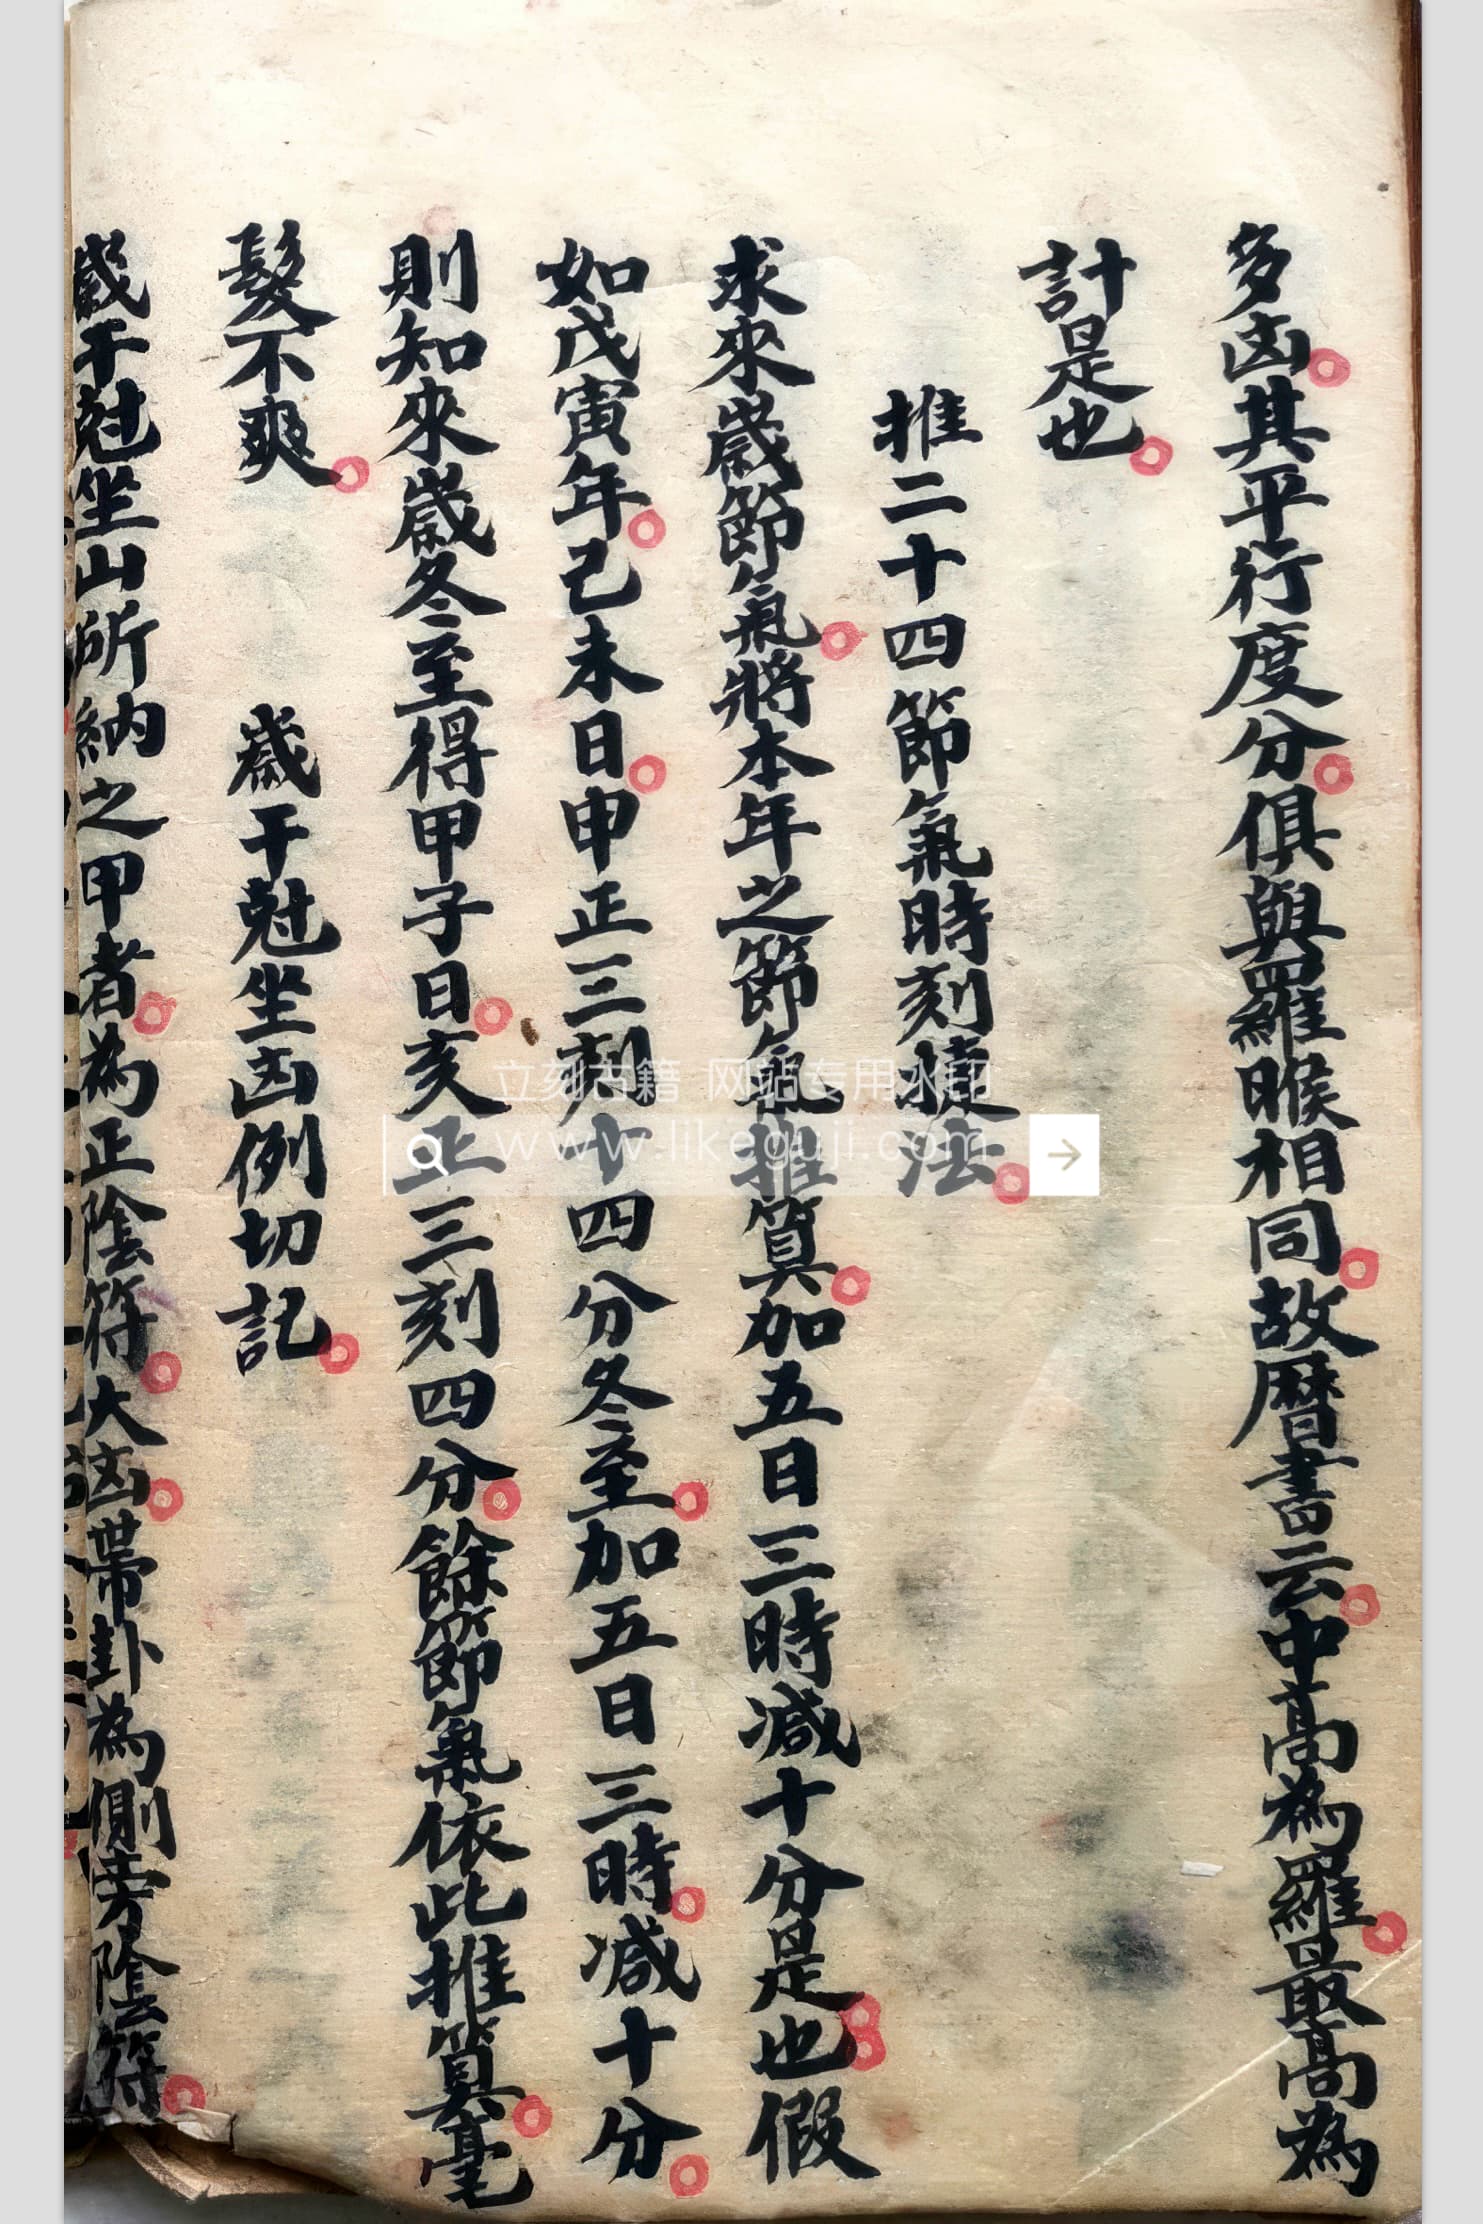 多凶其平行度分俱與羅睺相同故曆書云中高為羅最高為
計是也
推二十四節氣時刻捷法
求來歲節氣將本年之節氣推算加五日三時減十分是也假
如戊寅年己未日申正三刻十四分冬至加五日三時減十分
則知來歲冬至得甲子日亥正三刻四分餘節氣依此推算毫
髮不爽 歲干尅坐凶例切記
歲干尅坐山所納之甲者為正陰符大凶帶卦為側旁陰符
立刻古籍 网站专用水印
www.likeguji.com